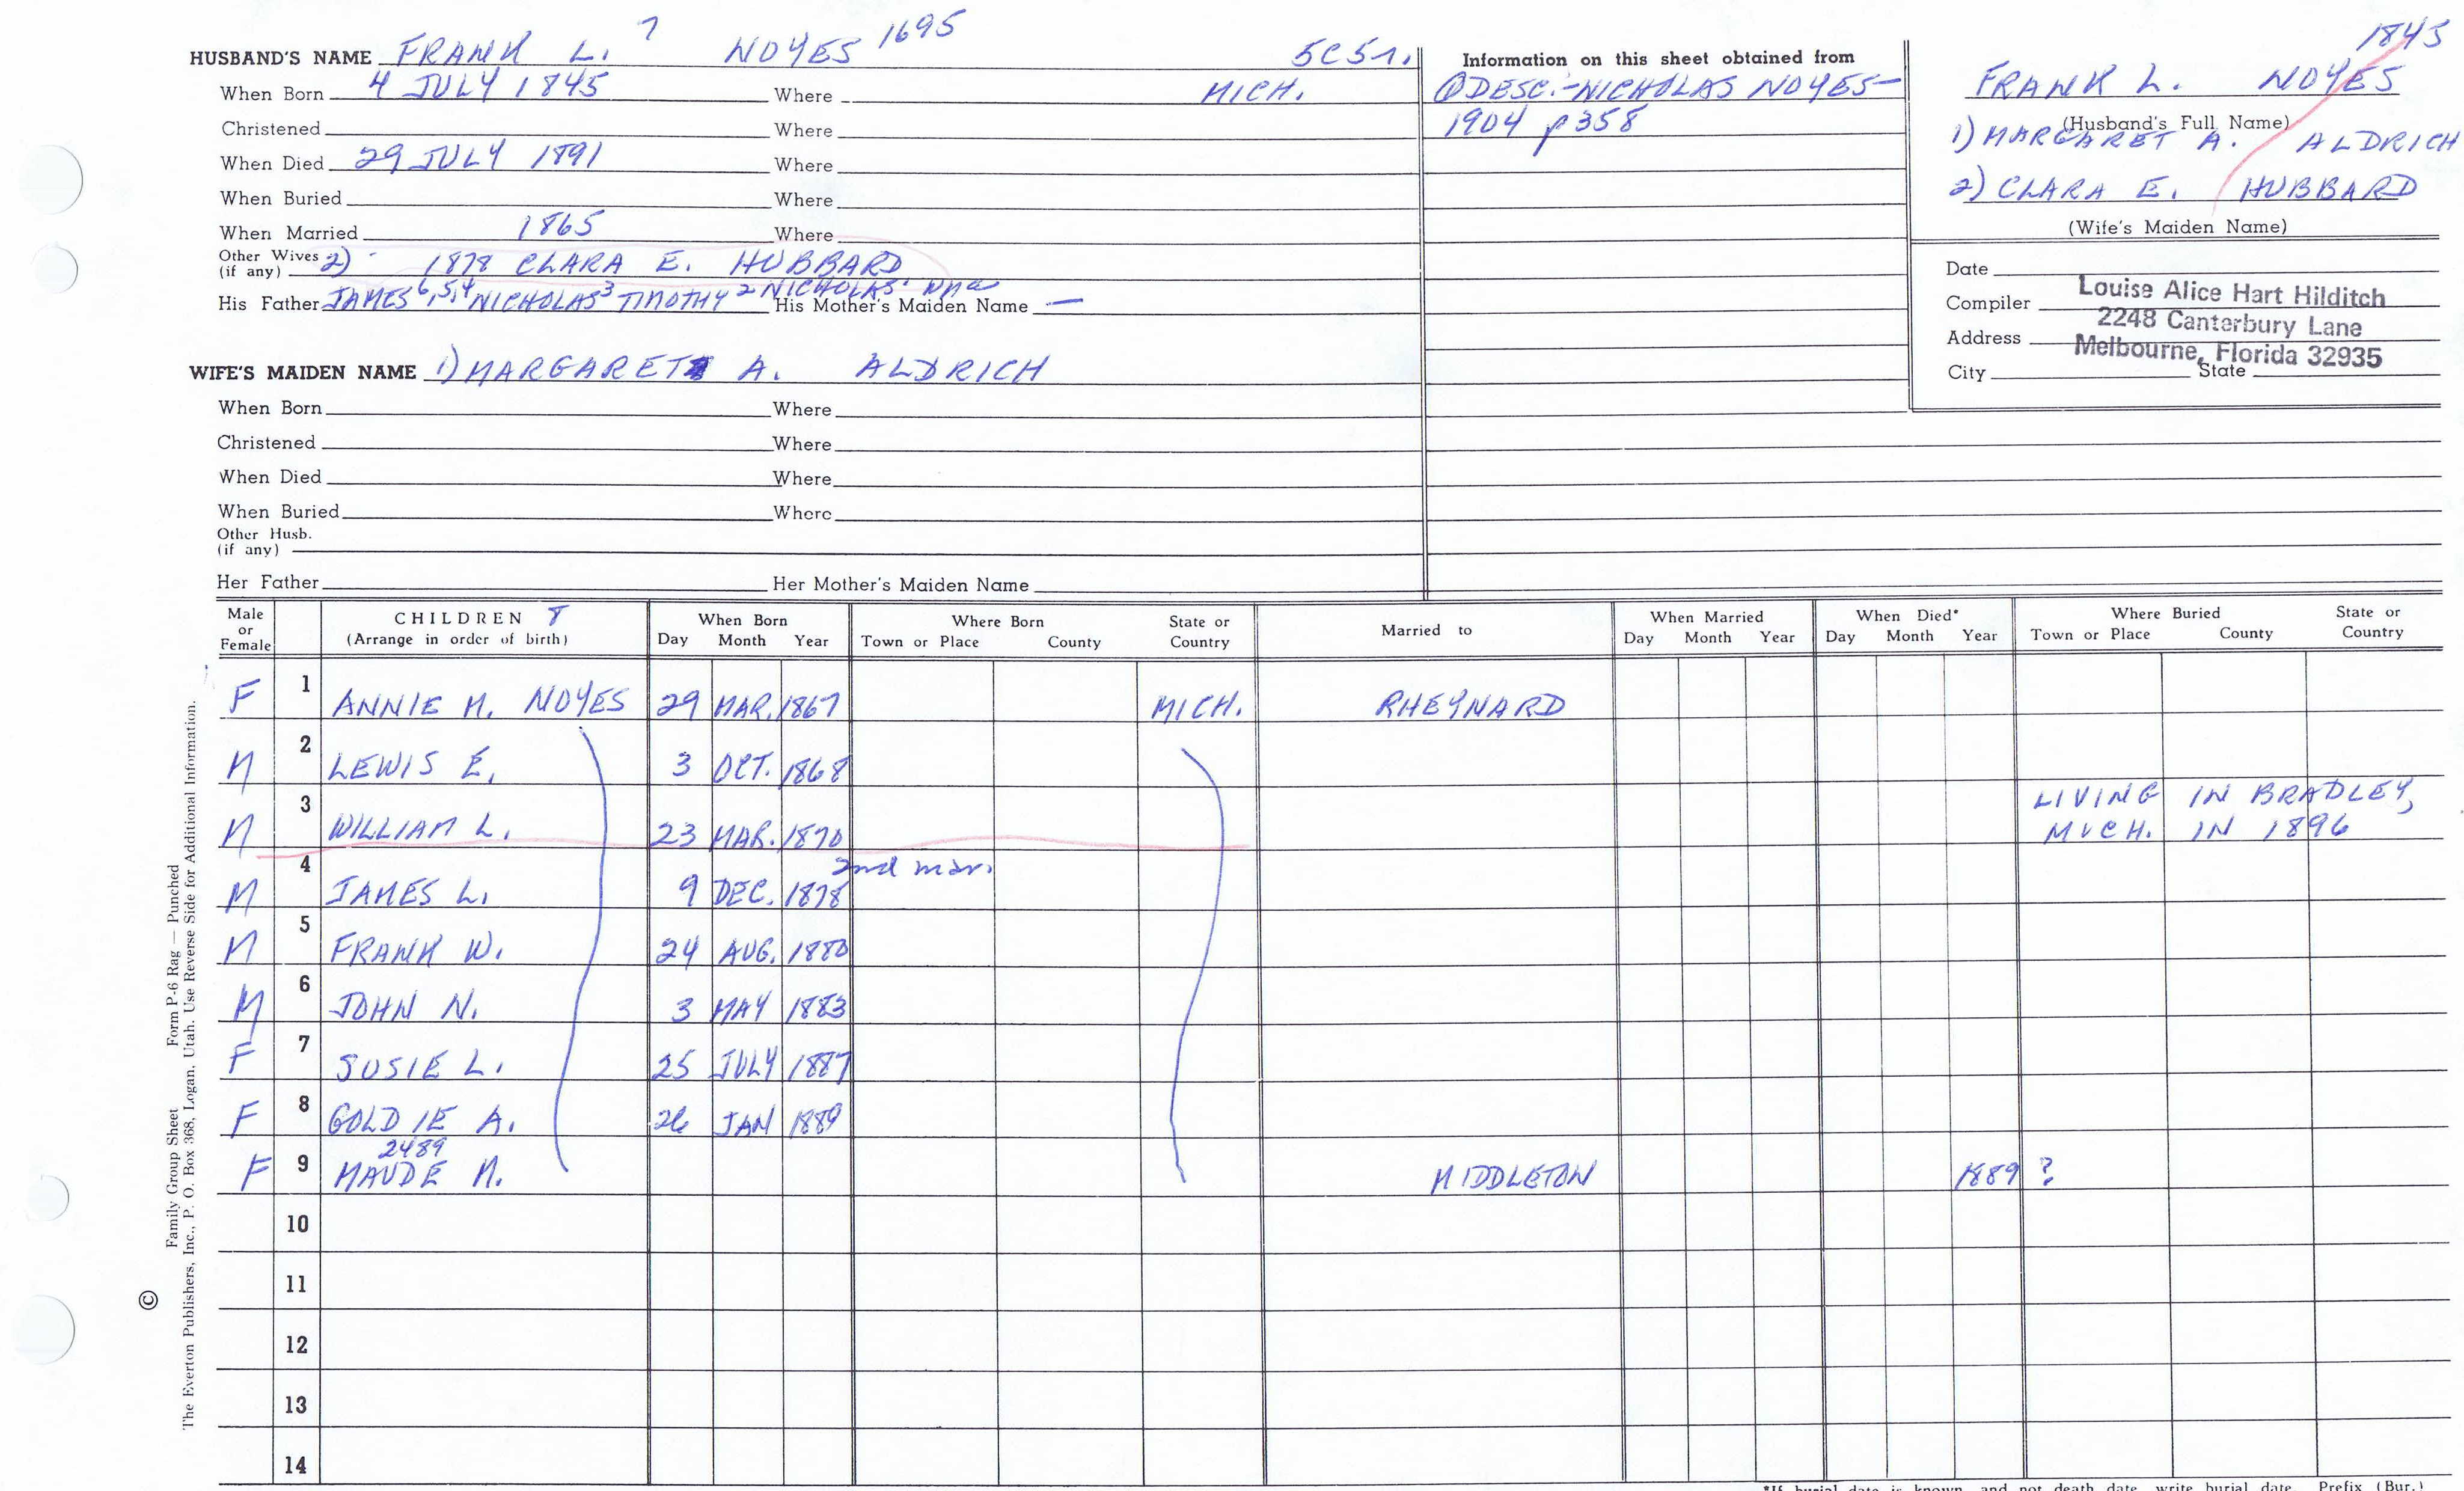 HUSBAND'S NAME FRANK L. 7 NOYES 1695 5C5r.
When Born 4 JULY 1845 Where MICH.
Christened Where
When Died 29 JULY 1891 Where
When Buried Where
When Married 1865 Where
Other Wives (if any) 2) 1878 CLARA E. HUBBARD
His Father JAMES 6,5,4 NICHOLAS 3 TIMOTHY 2 NICHOLAS 1 His Mother's Maiden Name —
WIFE'S MAIDEN NAME 1) MARGARET A. ALDRICH
When Born Where
Christened Where
When Died Where
When Buried Where
Other Husb.
(if any)
Her Father Her Mother's Maiden Name
Information on this sheet obtained from
DESC.-NICHOLAS NOYES-
1904 p358
1845
FRANK L. NOYES
(Husband's Full Name)
1) MARGARET A. ALDRICH
2) CLARA E. HUBBARD
(Wife's Maiden Name)
Date
Compiler Louise Alice Hart Hilditch
Address 2248 Canterbury Lane
Melbourne, Florida 32935
City State
Male or Female CHILDREN 8 (Arrange in order of birth) When Born Day Month Year Where Born Town or Place County State or Country Married to When Married Day Month Year When Died* Day Month Year Where Buried Town or Place County State or Country
F 1 ANNIE M. NOYES 29 MAR. 1867 MICH. RHEYNARD
M 2 LEWIS E. 3 OCT. 1868
M 3 WILLIAM L. 23 MAR. 1870 LIVING IN BRADLEY,
MICH. IN 1896
2nd mar.
M 4 JAMES L. 9 DEC. 1878
M 5 FRANK W. 24 AUG. 1880
M 6 JOHN N. 3 MAY 1883
F 7 SUSIE L. 25 JULY 1887
F 8 GOLDIE A. 26 JAN 1889
2489
F 9 MAUDE M. MIDDLETON 1889 ?
10
11
12
13
14
Family Group Sheet Form P-6 Rag — Punched
© The Everton Publishers, Inc., P. O. Box 368, Logan, Utah. Use Reverse Side for Additional Information.
*If burial date is known, and not death date, write burial date. Prefix (Bur.)